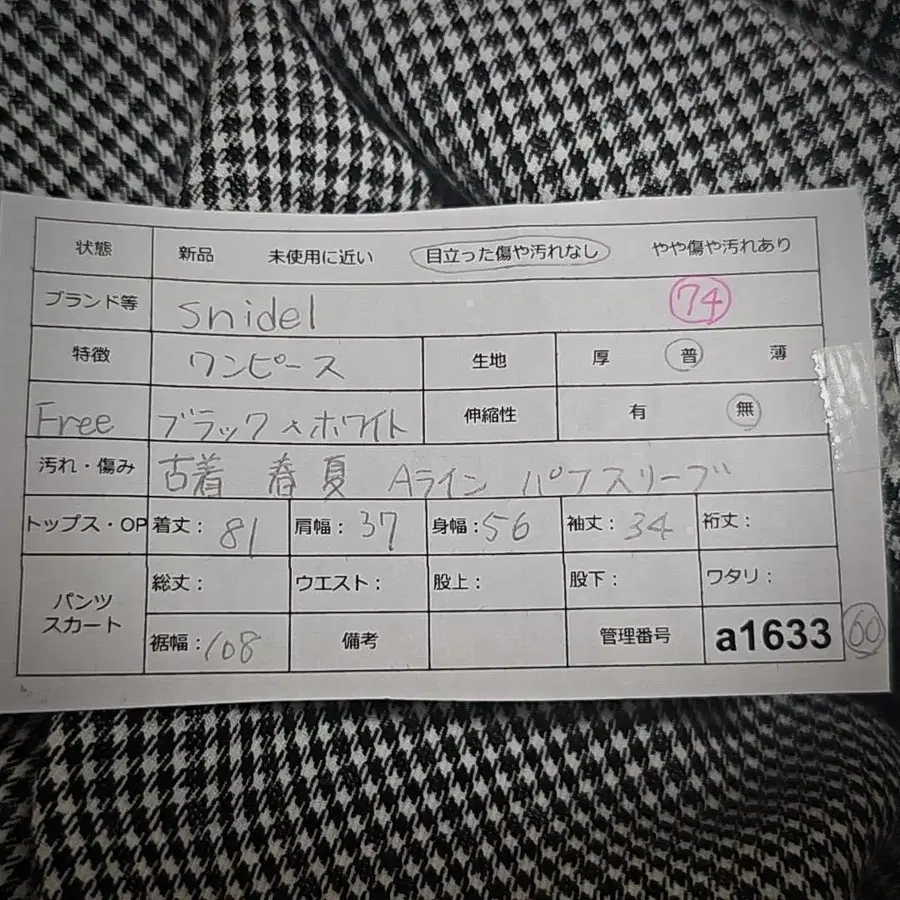 状態 新品 未使用に近い 目立った傷や汚れなし やや傷や汚れあり
ブランド等 snidel 74
特徴 ワンピース 生地 厚 普 薄
Free ブラック×ホワイト 伸縮性 有 無
汚れ・傷み 古着 春夏 Aライン パフスリーブ
トップス・OP 着丈：81 肩幅：37 身幅：56 袖丈：34 裄丈：
パンツ スカート 総丈： ウエスト： 股上： 股下： ワタリ：
裾幅：108 備考 管理番号 a1633 60